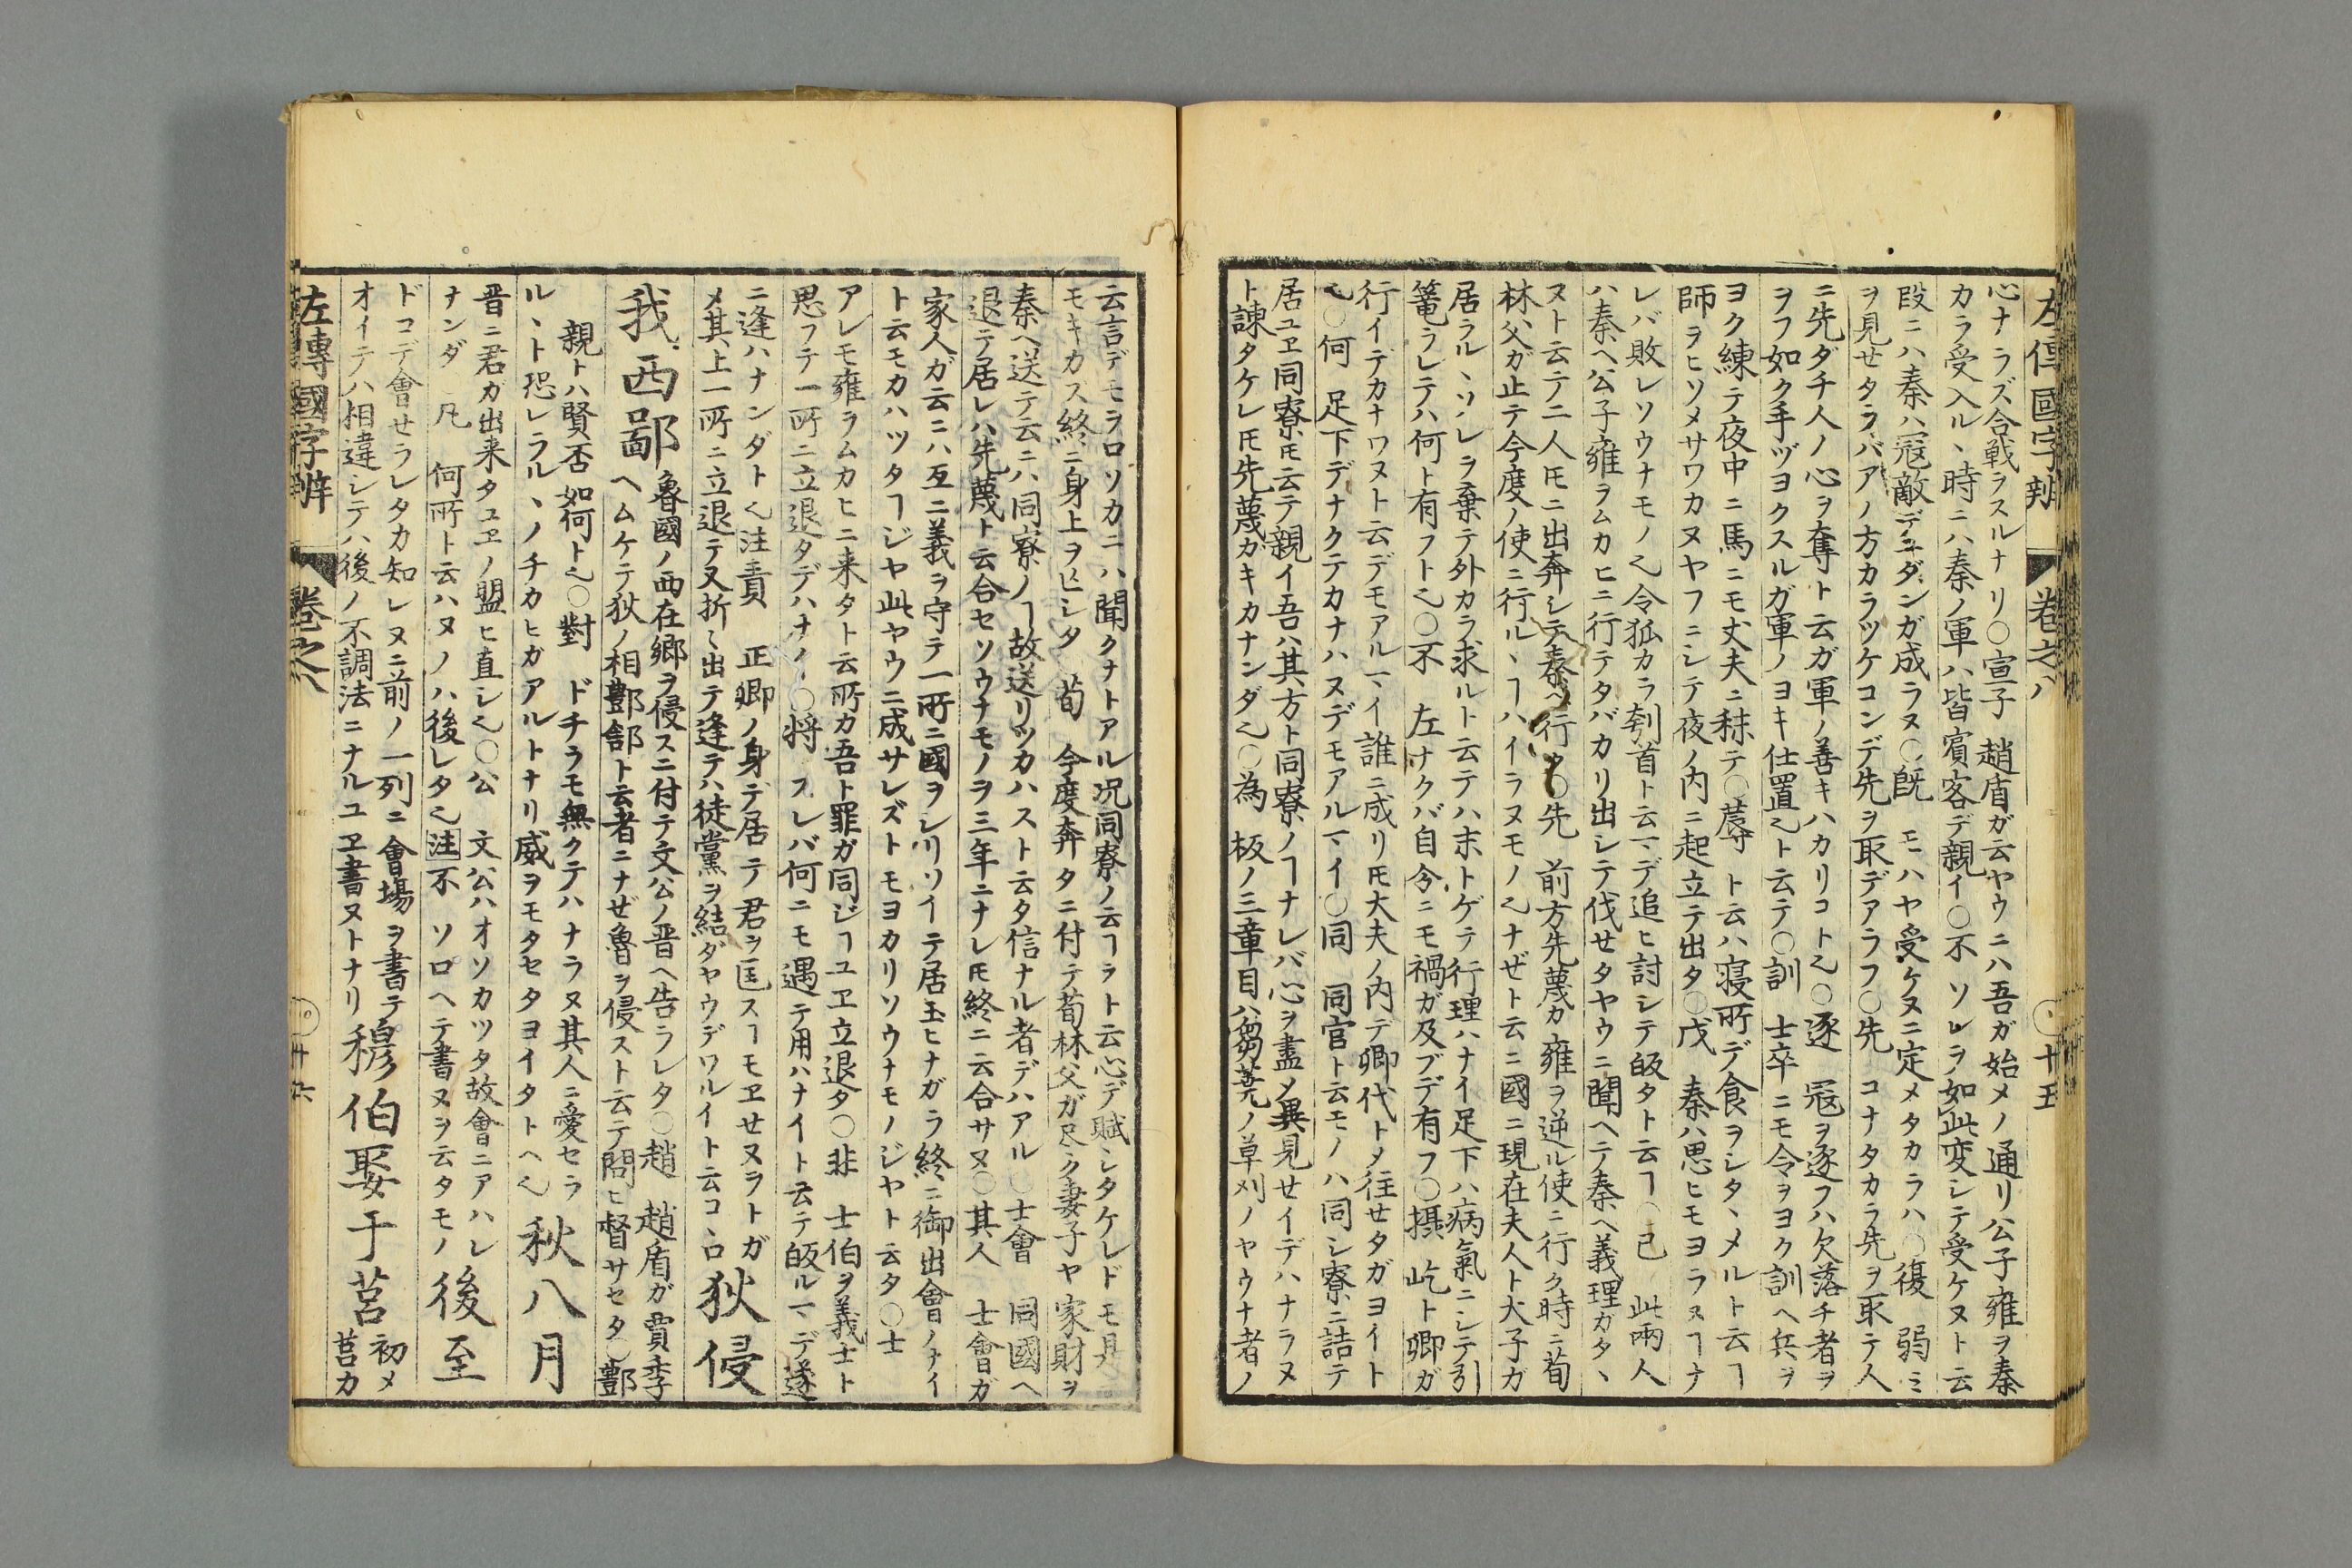 左傳國字辨 卷之八 十五
心ナラズ合戦ヲスルナリ○宣子 趙盾ガ云ヤウニハ吾ガ始メノ通リ公子雍ヲ秦
カラ受入ルヽ時ニハ秦ノ軍ハ皆賓客デ親イ○不 ソレヲ如此変シテ受ケヌト云
段ニハ秦ハ冦敵デユダンガ成ラヌ○既 モハヤ受ケヌニ定メタカラハ○復 弱ミ
ヲ見せタラバアノ方カラツケコンデ先ヲ取デアラフ○先 コナタカラ先ヲ取テ人
ニ先ダチ人ノ心ヲ奪ト云ガ軍ノ善キハカリコトヘ○逐 冦ヲ逐フハ欠落チ者ヲ
ヲフ如ク手ヅヨクスルガ軍ノヨキ仕置ヘト云テ○訓 士卒ニモ令ヲヨク訓ヘ兵ヲ
ヨク練テ夜中ニ馬ニモ丈夫ニ秣テ○蓐 ト云ハ寝所デ食ヲシタヽメルト云ヿ
師ヲヒソメサワカヌヤフニシテ夜ノ内ニ起立テ出タ○戊 秦ハ思ヒモヨラヌヿナ
レバ敗レソウナモノヘ令狐カラ刳首ト云マデ追ヒ討シテ皈タト云ヿ○己 此兩人
ハ秦ヘ公子雍ヲムカヒニ行テタバカリ出シテ伐せタヤウニ聞ヘテ秦ヘ義理ガタヽ
ヌト云テ二人𪜈ニ出奔シテ秦ヘ行タ○先 前方先蔑カ雍ヲ逆ル使ニ行ク時ニ荀
林父ガ止テ今度ノ使ニ行ルヽヿハイラヌモノヘナぜト云ニ國ニ現在夫人ト大子ガ
居ラルヽソレヲ棄テ外カラ求ルト云テハ末トゲテ行理ハナイ足下ハ病氣ニシテ引
篭ラレテハ何ト有フトヘ○不 左ナクバ自今ニモ禍ガ及ブデ有フ○攝 屹ト卿ガ
行イデカナワヌト云デモアルマイ誰ニ成リ𪜈大夫ノ内デ卿代トメ往せタガヨイト
ヘ○何 足下デナクテカナハヌデモアルマイ○同 同官ト云モノハ同シ寮ニ詰テ
居ユヱ同寮𪜈云テ親イ吾ハ其方ト同寮ノヿナレバ心ヲ盡メ異見せイデハナラヌ
ト諌タケレ𪜈先蔑カキカナンダヘ○為 板ノ三章目ハ芻蕘ノ草刈ノヤウナ者ノ
云言デモヲロソカニハ聞クナトアル况同寮ノ云ヿヲト云心デ賦シタケレドモ是
モキカス終ニ身上ヲ亡シタ 荀 今度奔タニ付テ荀林父ガ尽ク妻子ヤ家財ヲ
秦ヘ送テ云ニハ同寮ノヿ故送リツカハスト云タ信ナル者デハアル○士會 同國ヘ
退テ居レハ先蔑ト云合セソウナモノヲ三年ニナレ𪜈終ニ云合サヌ○其人 士會ガ
家人ガ云ニハ互ニ義ヲ守テ一所ニ國ヲシリソイテ居玉ヒナガラ終ニ御出會ノナイ
ト云モカハツタヿジヤ此ヤウニ成サレズトモヨカリソウナモノジヤト云タ○士
アレモ雍ヲムカヒニ来タト云所カ吾ト罪ガ同ジヿユヱ立退タ○非 士伯ヲ義士ト
思フテ一所ニ立退タデハナイ○将 フレバ何ニモ遇テ用ハナイト云テ皈ルマデ遂
ニ逢ハナンダトヘ注責 正卿ノ身デ居テ君ヲ匡スヿモヱせヌヲトガ
メ其上一所ニ立退テ又折々出テ逢テハ徒黨ヲ結ダヤウデワルイト云コヽロ 狄侵
我西鄙 魯國ノ西在郷ヲ侵スニ付テ文公ノ晋ヘ告ラレタ○趙 趙盾ガ賈季
ヘムケテ狄ノ相酆舒ト云者ニナぜ魯ヲ侵スト云テ問ヒ督サセタ○酆
親トハ賢否如何トヘ○對 ドチラモ無クテハナラヌ其人ニ愛セラ
ルヽト恐レラルヽノチカヒガアルトナリ威ヲモタセタヨイタトヘヘ 秋八月
晋ニ君ガ出来タユヱノ盟ヒ直シヘ○公 文公ハオソカツタ故會ニアハレ
ナンダ 凡 何所ト云ハヌノハ後レタヘ 注不 ソロヘテ書ヌヲ云タモノ 後至
ドコデ會せラレタカ知レヌニ前ノ一列ニ會場ヲ書テ
オイテハ相違シテハ後ノ不調法ニナルユヱ書ヌトナリ 穆伯娶于莒 初メ
莒カ
左傳國字辨 卷之八 十六